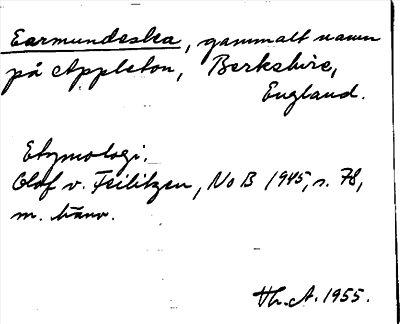 Earmundeslea, gammalt namn
på Appleton, Berkshire,
England.
Etymologi.
Olof v. Feilitzen, NoB 1945, s. 78,
m. hänv.
Th. A. 1955.